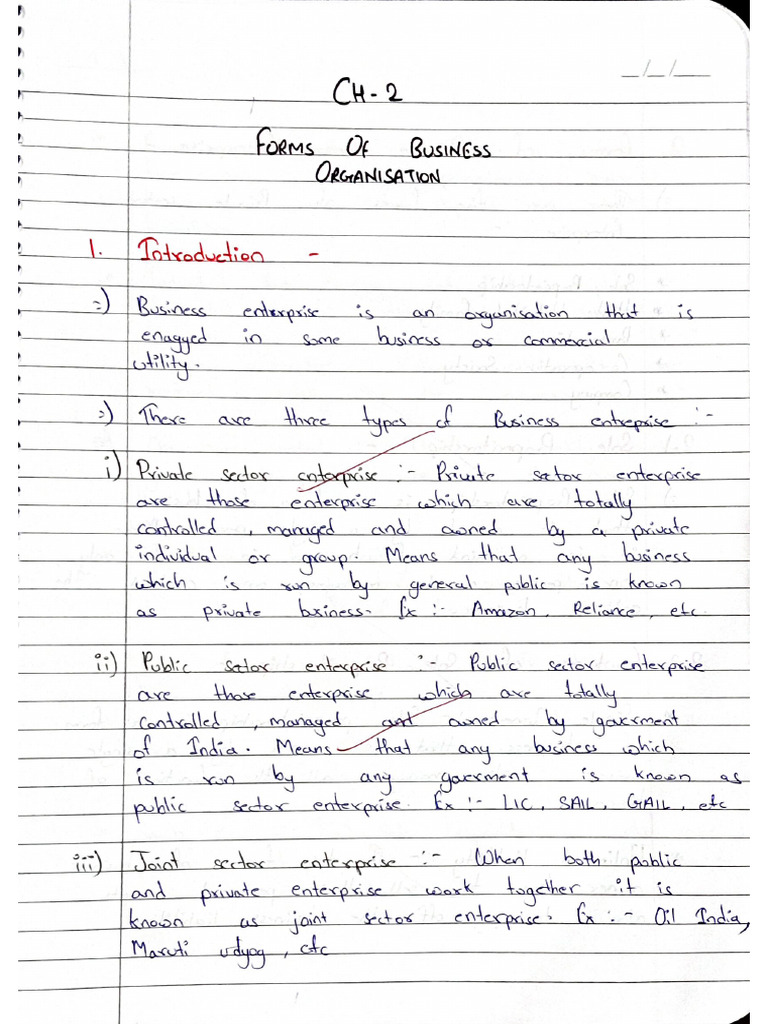 _/_/__
CH-2
FORMS OF BUSINESS
ORGANISATION
1. Introduction -
=) Business enterprise is an organisation that is
enagyed in some business or commercial
utility.
=) There are three types of Business entreprise :-
i) Private sector enterprise :- Private setor enterprise
are those enterprise which are totally
controlled, managed and owned by a private
individual or group. Means that any business
which is run by general public is known
as private business. Ex :- Amazon, Reliance, etc
ii) Public setor enterprise :- Public sector enterprise
are those enterprise which are totally
controlled, managed and owned by goverment
of India. Means that any business which
is run by any goverment is known as
public sector enterprise. Ex :- LIC, SAIL, GAIL, etc
iii) Joint sector enterprise :- When both public
and private enterprise work together it is
known as joint sector enterprise. Ex :- Oil India,
Maruti udyog, etc